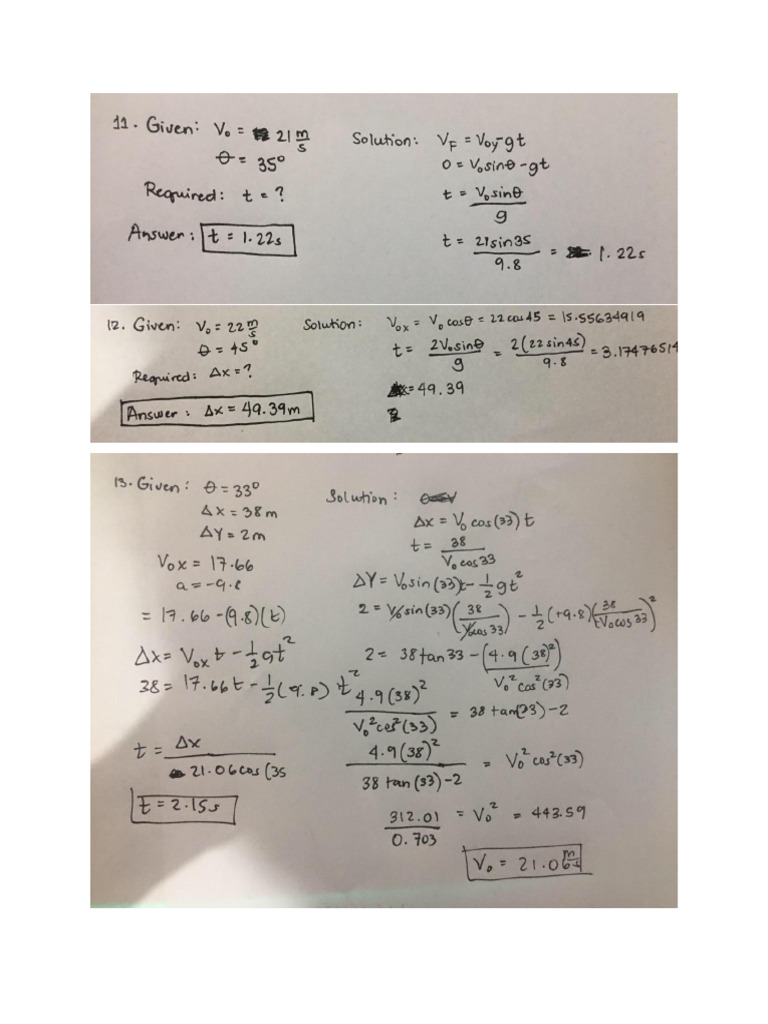 11. Given: V₀ = 21 m/s
θ = 35°
Required: t = ?
Answer: t = 1.22s
Solution: V_F = V₀y - gt
0 = V₀sinθ - gt
t = V₀sinθ / g
t = 21sin35 / 9.8 = 1.22s
12. Given: V₀ = 22 m/s
θ = 45°
Required: Δx = ?
Answer: Δx = 49.39m
Solution: V₀x = V₀cosθ = 22cos45 = 15.55634919
t = 2V₀sinθ / g = 2(22sin45) / 9.8 = 3.17476514
= 49.39
13. Given: θ = 33°
Δx = 38m
ΔY = 2m
V₀x = 17.66
a = -9.8
= 17.66 - (9.8)(t)
Δx = V₀x t - 1/2 gt²
38 = 17.66t - 1/2 (9.8) t²
t = Δx / 21.06cos(35
t = 2.15s
Solution:
Δx = V₀ cos(33) t
t = 38 / V₀cos33
ΔY = V₀sin(33)t - 1/2 gt²
2 = V₀sin(33)(38 / V₀cos33) - 1/2 (+9.8)(38 / V₀cos33)²
2 = 38tan33 - (4.9(38²) / V₀²cos²(33)
4.9(38)² / V₀²cos²(33) = 38tan(33) - 2
4.9(38)² / 38tan(33) - 2 = V₀²cos²(33)
312.01 / 0.703 = V₀² = 443.59
V₀ = 21.06 m